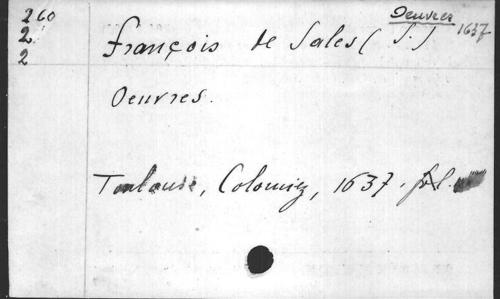 260
2
2
Oeuvres
1637
François de Sales (S.)
Oeuvres.
Toulouse, Colomiez, 1637. fol.